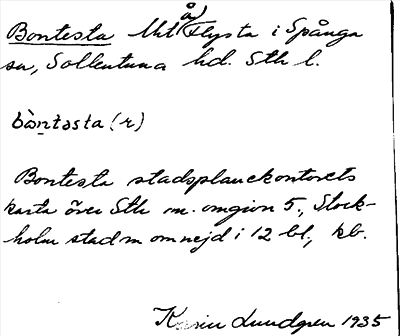 Bontesta Ukt å) Flysta i Spånga
sn, Sollentuna hd. Sth l.
bòntesta (r)
Bontesta stadsplanekontorets
karta över Sth m. omgivn 5., Stock-
holm stad m omnejd i 12 bl., kb.
Karin Lundgren 1935